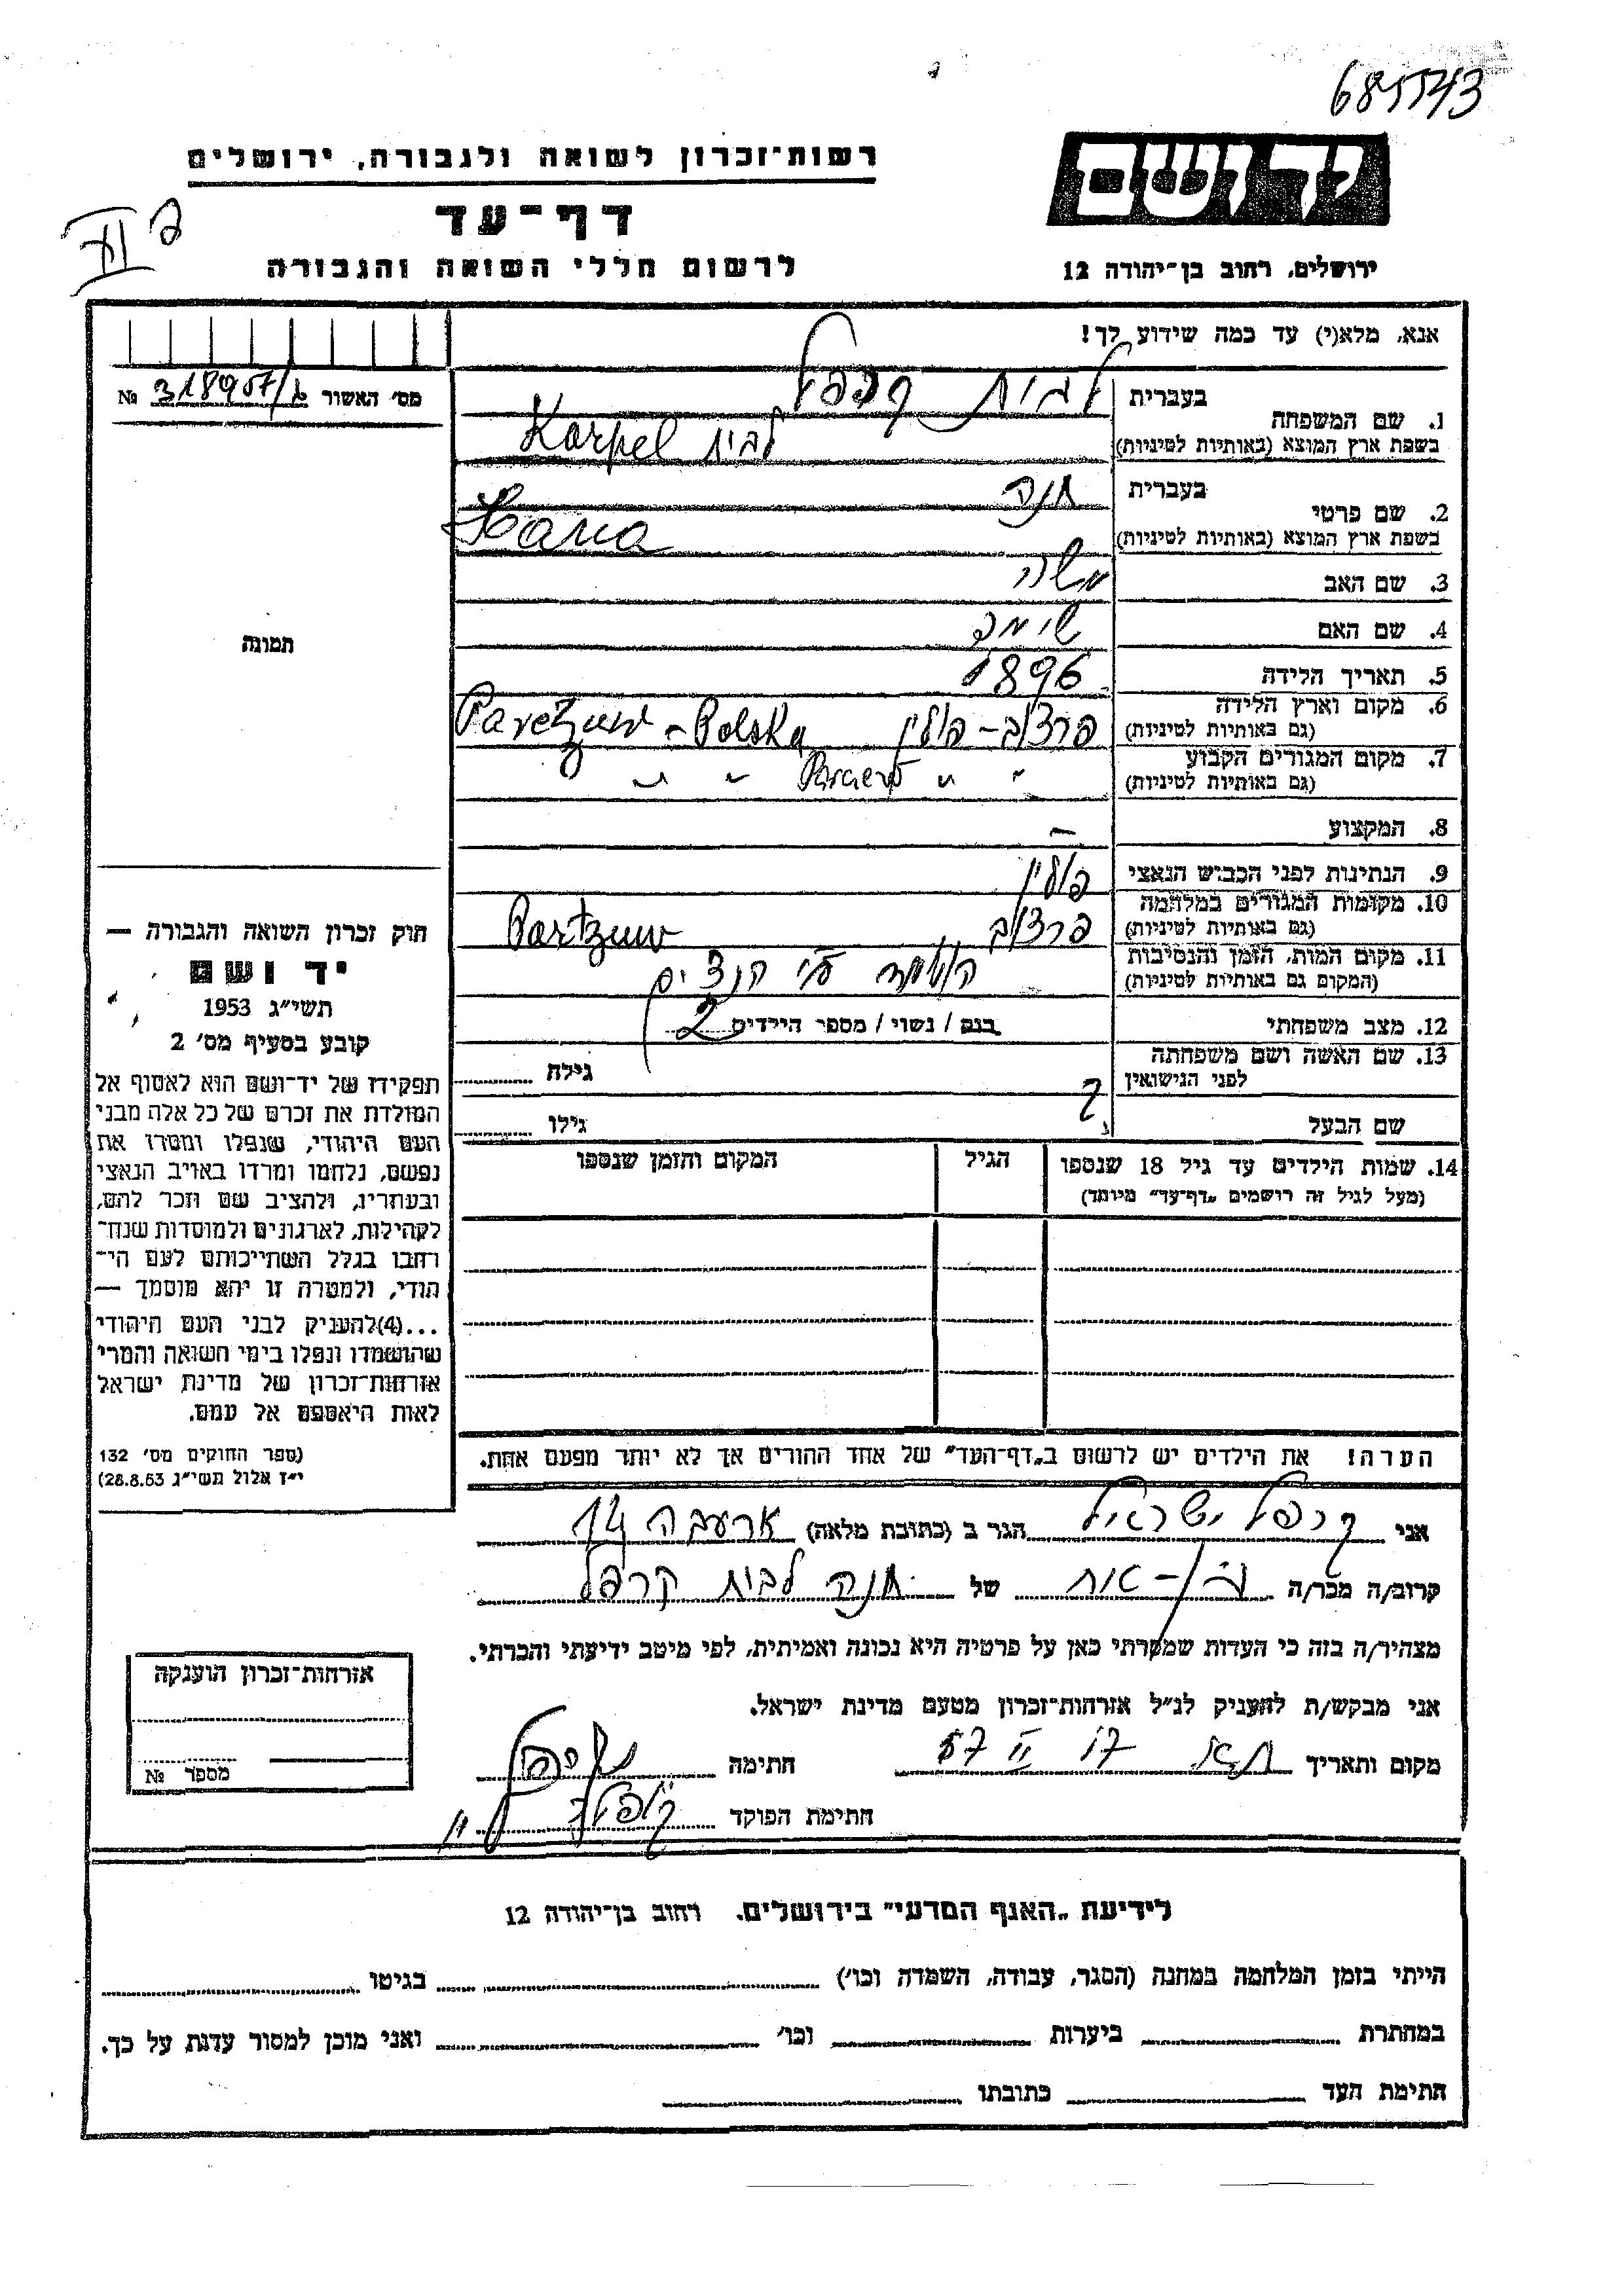 685543
יד ושם
רשות-זכרון לשואה ולגבורה, ירושלים
דף-עד
לרשום חללי השואה והגבורה
ירושלים, רחוב בן-יהודה 12
אנא, מלא(י) עד כמה שידוע לך!
מס' האשור № 318907/
1. שם המשפחה
בעברית לבית קרפל
בשפת ארץ המוצא (באותיות לטיניות) לבית Karpel
2. שם פרטי
בעברית חנה
בשפת ארץ המוצא (באותיות לטיניות) Hana
3. שם האב משה
4. שם האם שימה
תמונה
5. תאריך הלידה 1896
6. מקום וארץ הלידה (גם באותיות לטיניות) פרצוב - פולין Paretzuw - Polska
7. מקום המגורים הקבוע (גם באותיות לטיניות) " "
8. המקצוע —
9. הנתינות לפני הכביש הנאצי פולין
10. מקומות המגורים במלחמה (גם באותיות לטיניות) פרצוב Partzuw
11. מקום המות, הזמן והנסיבות (המקום גם באותיות לטיניות) ע"י הנצים
12. מצב משפחתי בנם / נשוי / מספר היידים 2
13. שם האשה ושם משפחתה לפני הנישואין גילה
שם הבעל ? גילו
14. שמות הילדים עד גיל 18 שנספו
(מעל לגיל זה רושמים "דף-עד" מיוחד)
הגיל
המקום והזמן שנספו
הערה! את הילדים יש לרשום ב"דף-העד" של אחד ההורים אך לא יותר מפעם אחת.
חוק זכרון השואה והגבורה —
יד ושם
תשי"ג 1953
קובע בסעיף מס' 2
תפקידו של יד-ושם הוא לאסוף אל
המולדת את זכרם של כל אלה מבני
העם היהודי, שנפלו ומסרו את
נפשם, נלחמו ומרדו באויב הנאצי
ובעוזריו, ולהציב שם וזכר להם,
לקהילות, לארגונים ולמוסדות שנח-
רחבו בגלל השתייכותם לעם הי-
הודי, ולמטרה זו יהא מוסמך —
...(4)להעניק לבני העם היהודי
שהושמדו ונפלו בימי השואה והמרי
אזרחות-זכרון של מדינת ישראל
לאות היאספם אל עמם.
(ספר החוקים מס' 132
י"ז אלול תשי"ג 28.8.53)
אני קרפל ישראל הגר ב (כתובת מלאה) 14
קרוב/ה מכר/ה של חנה לבית קרפל
מצהיר/ה בזה כי העדות שמסרתי כאן על פרטיה היא נכונה ואמיתית, לפי מיטב ידיעתי והכרתי.
אני מבקש/ת להעניק לנ"ל אזרחות-זכרון מטעם מדינת ישראל.
מקום ותאריך ת"א 17 II 57 חתימה
חתימת הפוקד
אזרחות-זכרון הוענקה
מספר №
לידיעת "האגף המדעי" בירושלים. רחוב בן-יהודה 12
הייתי בזמן המלחמה במחנה (הסגר, עבודה, השמדה וכו') בגיטו
במחתרת ביערות וכו' ואני מוכן למסור עדות על כך.
חתימת העד כתובתו